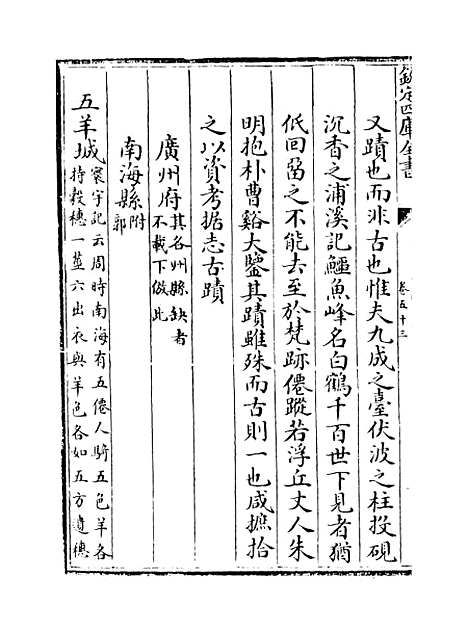 欽定四庫全書
卷五十三
又蹟也而非古也惟夫九成之臺伏波之柱投硯
沉香之浦溪記鱷魚峰名白鶴千百世下見者猶
低回留之不能去至於梵跡僊蹤若浮丘丈人朱
明抱朴曹谿大鑒其蹟雖殊而古則一也咸摭拾
之以資考据志古蹟
廣州府其各州縣缺者不載下倣此
南海縣附郭
五羊城寰宇記云周時南海有五僊人騎五色羊各
持穀穗一莖六出衣與羊色各如五方遺穗